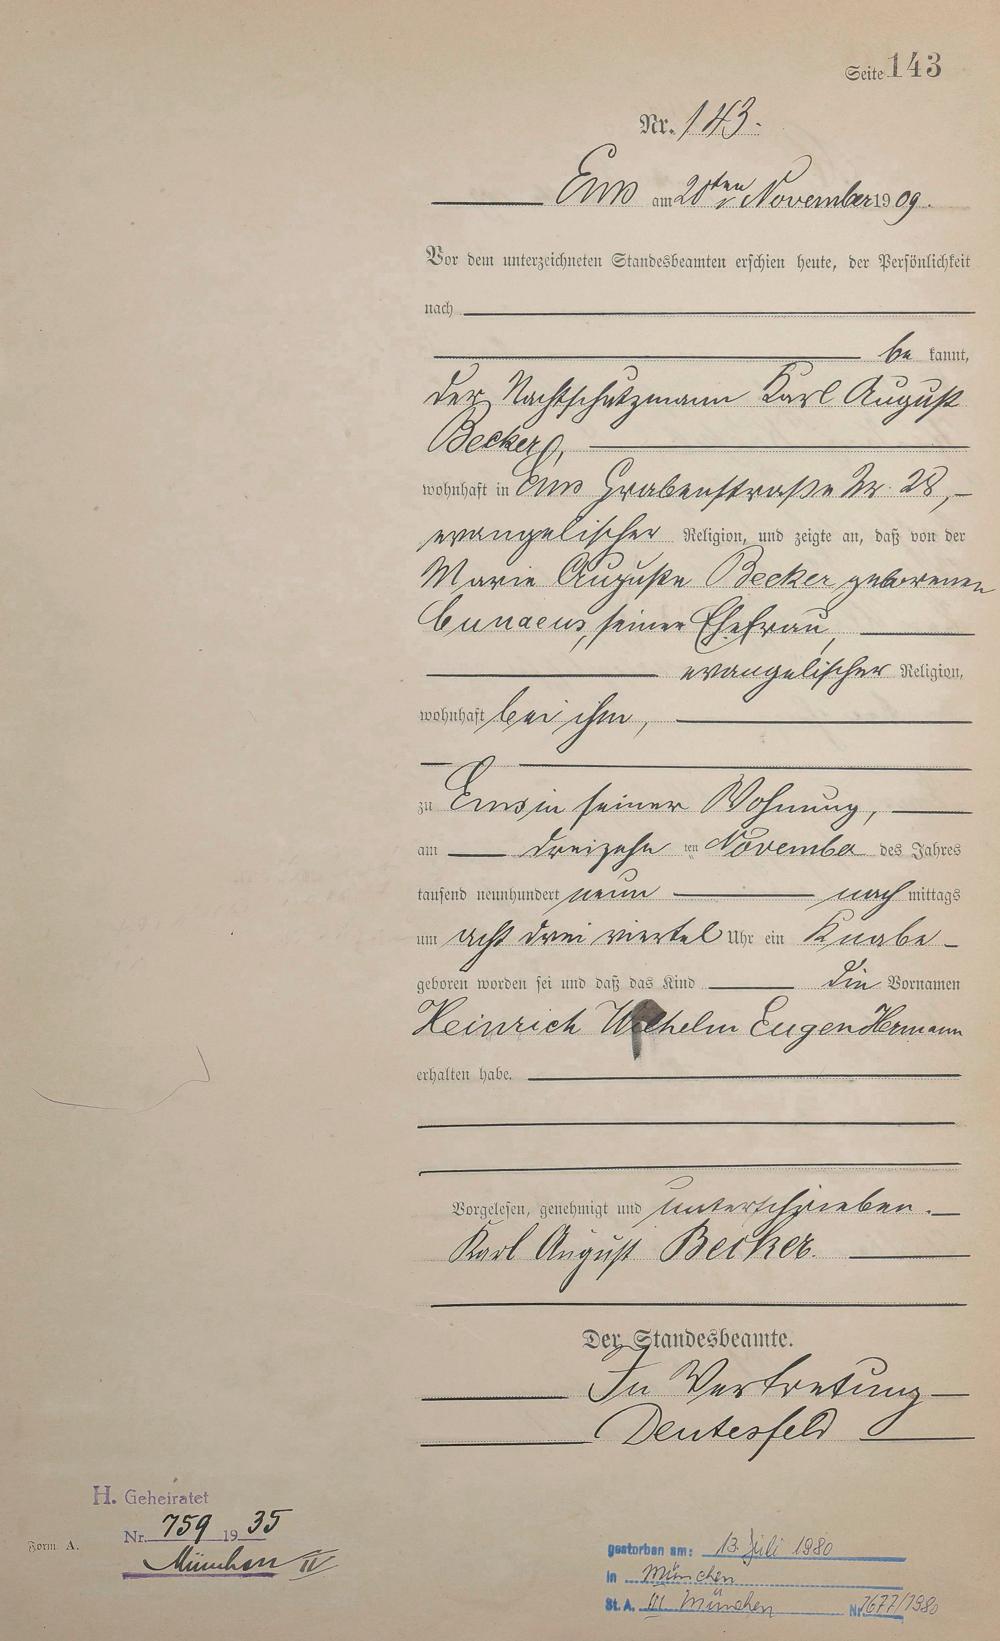 Seite 143
Nr. 143.
Ems am 20ten November 1909.
Vor dem unterzeichneten Standesbeamten erschien heute, der Persönlichkeit
nach
be kannt,
der Nachtschutzmann Karl August
Becker,
wohnhaft in Ems Grabenstraße Nr. 28,
evangelischer Religion, und zeigte an, daß von der
Marie Auguste Becker geborenen
Cunaeus, seiner Ehefrau,
evangelischer Religion,
wohnhaft bei ihm,
zu Ems in seiner Wohnung,
am dreizehn ten November des Jahres
tausend neunhundert neun nach mittags
um acht drei viertel Uhr ein Knabe
geboren worden sei und daß das Kind die Vornamen
Heinrich Wilhelm Eugen Hermann
erhalten habe.
Vorgelesen, genehmigt und unterschrieben.
Karl August Becker.
Der Standesbeamte.
In Vertretung
H. Geheiratet
Nr. 759 1935
München II
Form A.
gestorben am: 13. Juli 1980
in München
St. A. III München Nr. 1677/1980